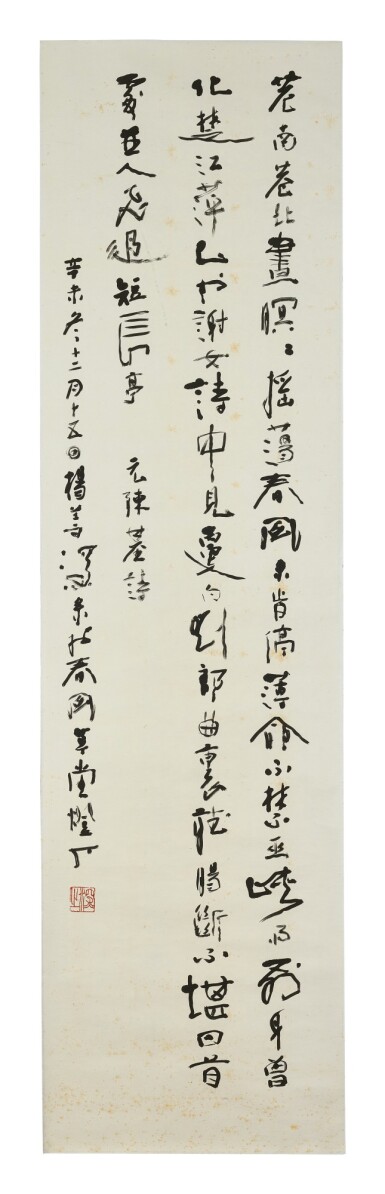 巷南巷北晝暝〻搖蕩春風未肯停薄命不禁巫峽雨前身曾
化楚江萍已於謝女詩中見還向劉郎曲裏聽腸斷不堪回首
處人飛過短長亭 元陳基詩
辛未冬十二月十五日楊善深於春風草堂燈下